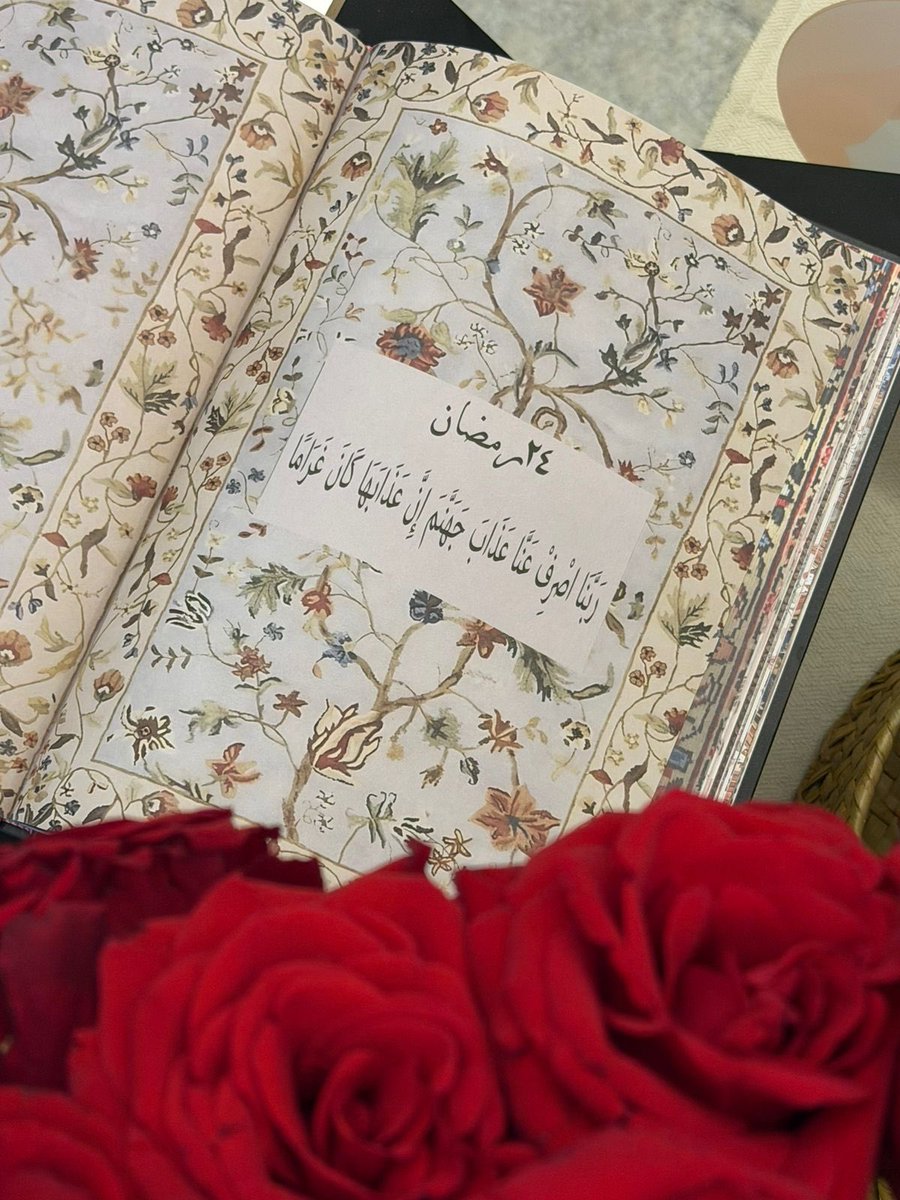 ٢٤رمضان
رَبَّنَا اصْرِفْ عَنَّا عَذَابَ جَهَنَّمَ إِنَّ عَذَابَهَا كَانَ غَرَامًا